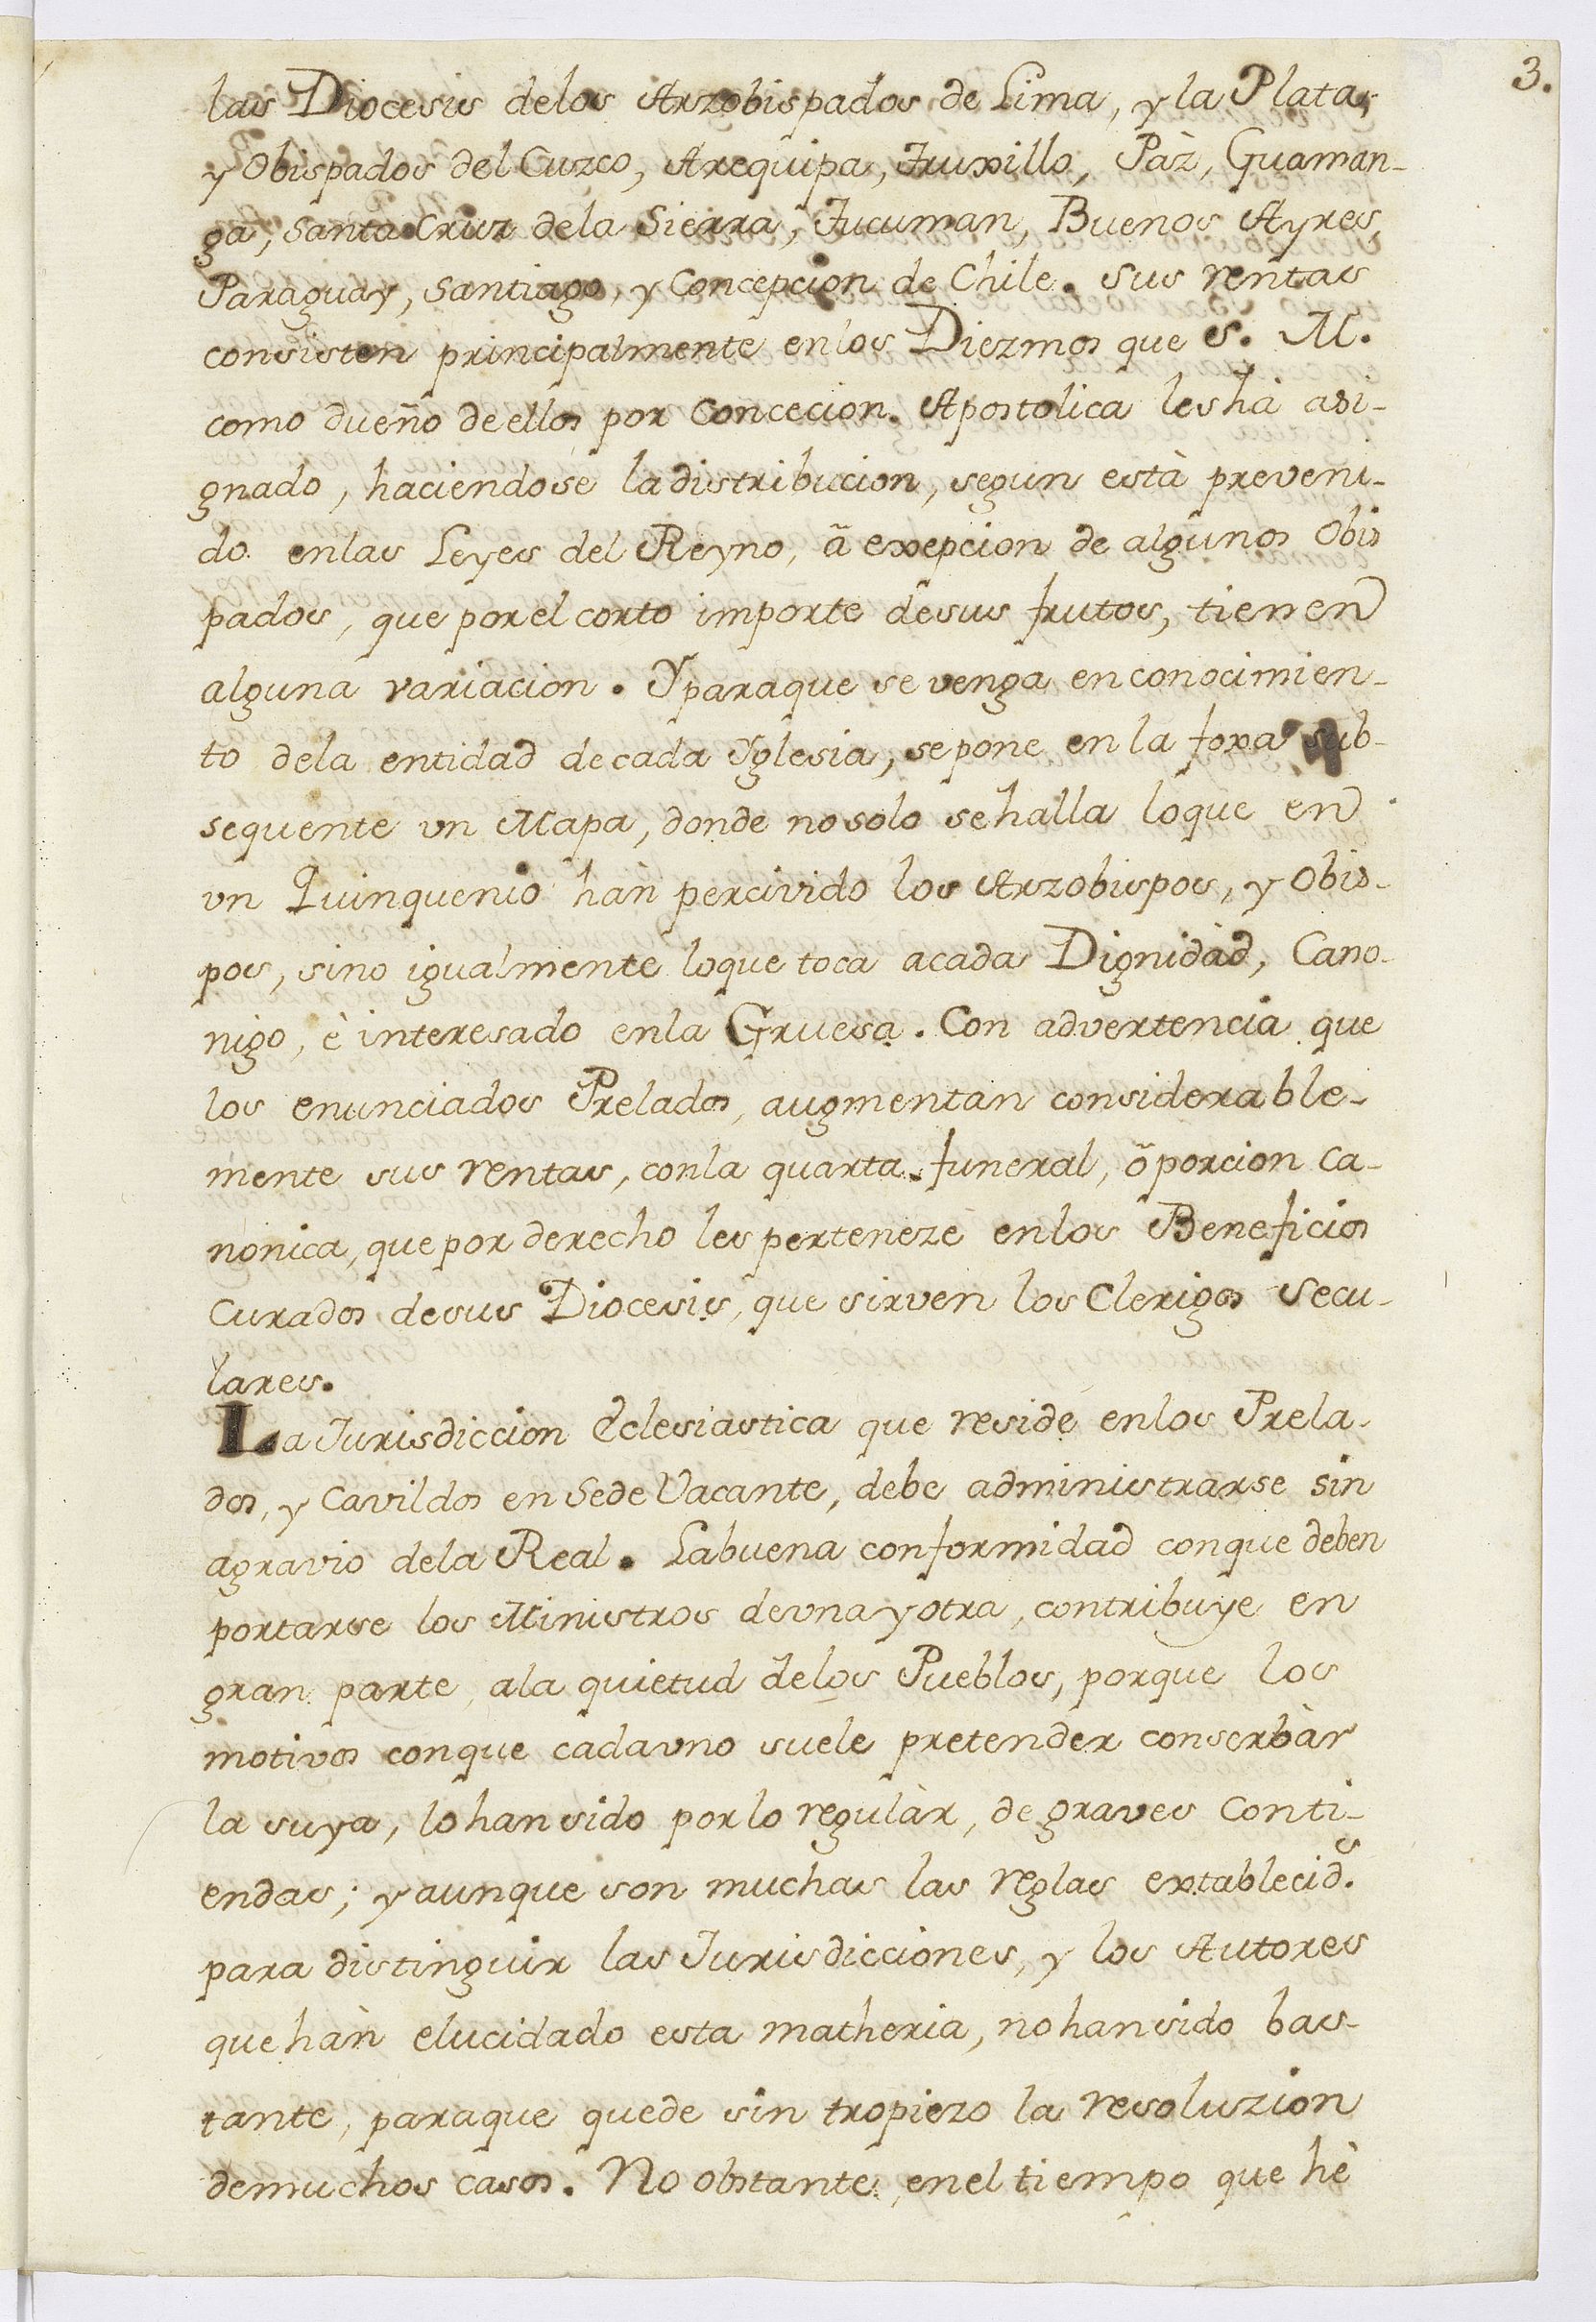 3.
las Diocesis delos Arzobispados de Lima, y la Plata,
y Obispados del Cuzco, Arequipa, Truxillo, Pàz, Guaman-
ga, Santa Cruz dela Sierra, Tucuman, Buenos Ayres,
Paraguay, Santiago, y Concepcion de Chile. Sus rentas
consisten principalmente enlos Diezmos que S. M.
como dueño de ellos por Concecion. Apostolica les hà asi-
gnado, haciendose la distribucion, segun està preveni-
do enlas Leyes del Reyno, ã exepcion de algunos Obis
pados, que por el corto importe desus frutos, tienen
alguna variacion. Y paraque se venga en conocimien-
to dela entidad de cada Yglesia, se pone en la foxa sub-
sequente vn Mapa, donde no solo se halla loque en
vn Quinquenio hàn percivido los Arzobispos, y Obis-
pos, sino igualmente loque toca acada Dignidàd, Cano-
nigo, è interesado enla Gruesa. Con advertencia que
los enunciados Prelados, augmentan considerable-
mente sus rentas, conla quarta funeral, õ porcion ca-
nonica, que por derecho les perteneze enlos Beneficios
Curados desus Diocesis, que sirven los Clerigos Secu-
lares.
La Jurisdiccion Eclesiastica que reside enlos Prela-
dos, y Cavildos en Sede Vacante, debe administrarse sin
agravio dela Real. La buena conformidad conque deben
portarse los Ministros de vna y otra, contribuye en
gran parte ala quietud delos Pueblos, porque los
motivos conque cada vno suele pretender conserbàr
la suya, lo han sido por lo regulàr, de graves Conti-
endas; y aunque son muchas las reglas extablecid.s
para distinguir las Jurisdicciones, y los Autores
que hàn elucidado esta matheria, no han sido bas-
tante, paraque quede sin tropiezo la resoluzion
de muchos casos. No obstante, enel tiempo que hè